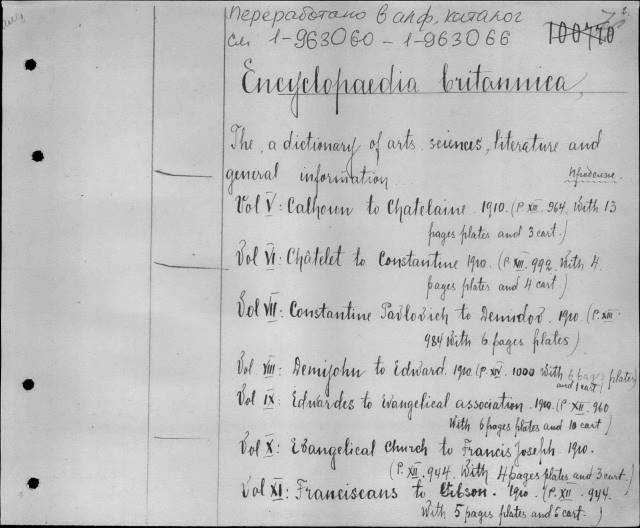 Переработано в алф. каталог
см 1-963060 - 1-963066
100770
Encyclopaedia britannica,
The, a dictionary of arts. sciences, literature and
general information
Vol V: Calhoun to Chatelaine. 1910. (P. XII. 964. With 13
pages plates and 3 cart.)
Vol VI: Châtelet to Constantine 1910. (P. XII. 992. With 4
pages plates and 4 cart.)
Vol VII: Constantine Pavlovich to Demidov. 1910. (P. XII
984 With 6 pages plates)
Vol. VIII: Demijohn to Edward. 1910. (P. XIV. 1000 With 6 pages plates
and 1 cart.)
Vol IX: Edwardes to Evangelical association. 1910. (P. XII. 960
With 6 pages plates and 10 cart)
Vol X: Evangelical Church to Francis Joseph. 1910.
(P. XII. 944. With 4 pages plates and 3 cart.)
Vol XI: Franciscans to Gibson. 1910. (P. XII. 944.
With 5 pages plates and 5 cart.)